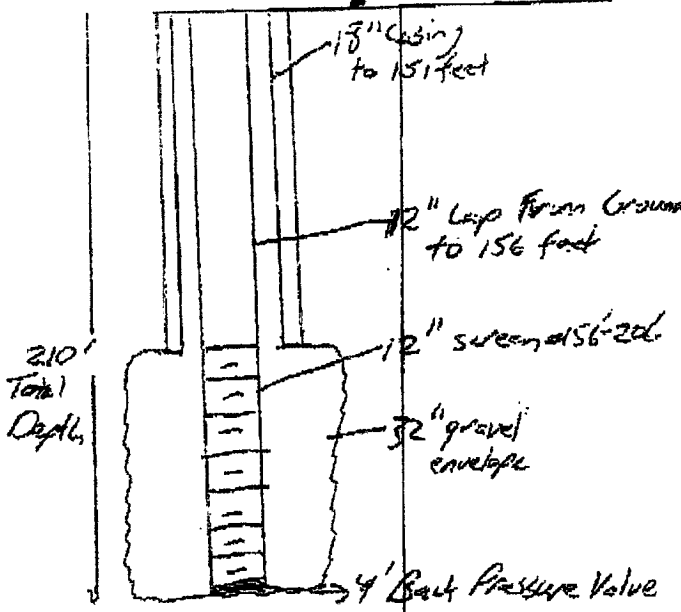 18" Casing
to 151 feet
12" Lap From Ground
to 156 feet
12" screen 156'-206'
210'
Total
Depth
32" gravel
envelope
4' Back Pressure Valve